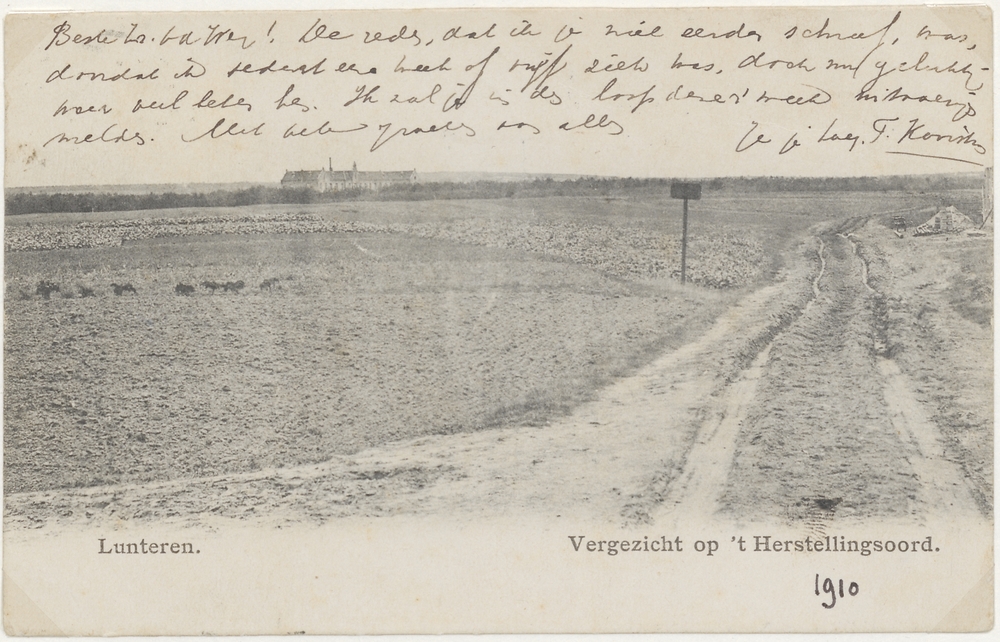 Beste Zr. v d Weg! De reden, dat ik je niet eerder schreef, was,
doordat ik sedert een week of vijf ziek was, doch nu gelukkig
weer veel beter ben. Ik zal je in den loop dezer week
melden. Met vele groeten aan alles
Zo je toeg. T.
Lunteren.
Vergezicht op 't Herstellingsoord.
1910